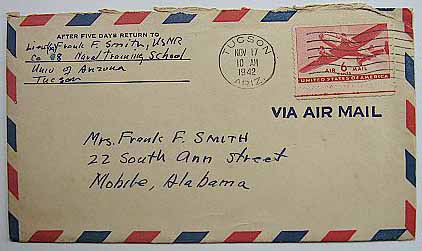 AFTER FIVE DAYS RETURN TO
Lieut(jg) Frank F. Smith, USNR
Co 8 Naval Training School
Univ of Arizona
Tucson
TUCSON
NOV 17
10 AM
1942
ARIZ.
AIR MAIL
6
UNITED STATES OF AMERICA
VIA AIR MAIL
Mrs. Frank F. SMITH
22 South Ann Street
Mobile, Alabama